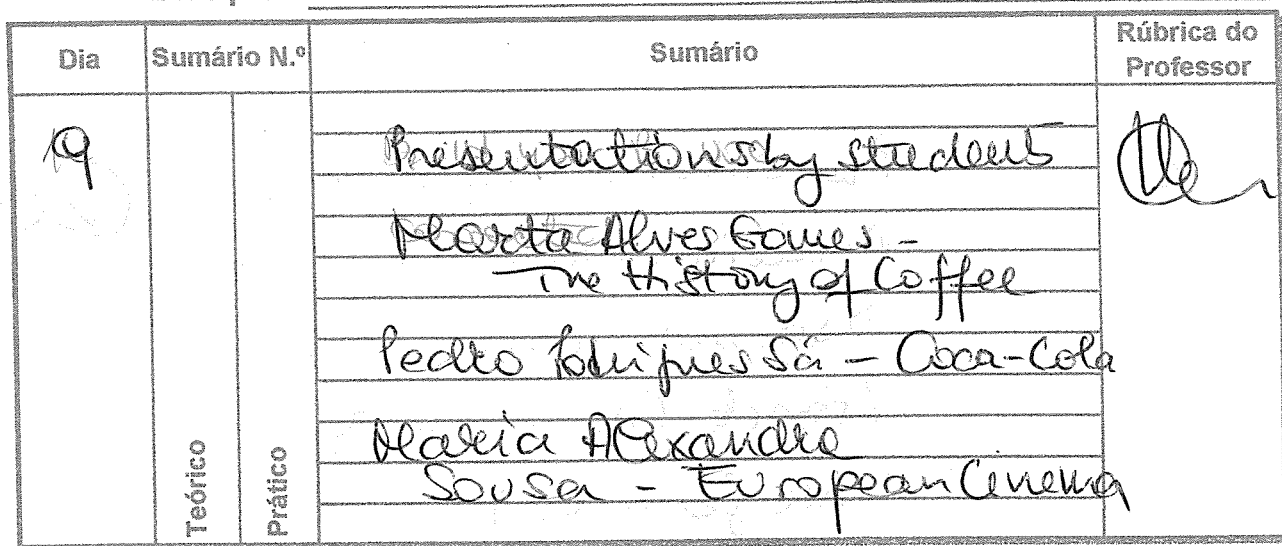 Dia Sumário N.º Sumário Rúbrica do Professor
19
Presentations by students
Marta Alves Gomes -
The History of Coffee
Pedro Rodrigues Sá - Coca-Cola
Maria Alexandra
Sousa - European Cinema
Teórico
Prático